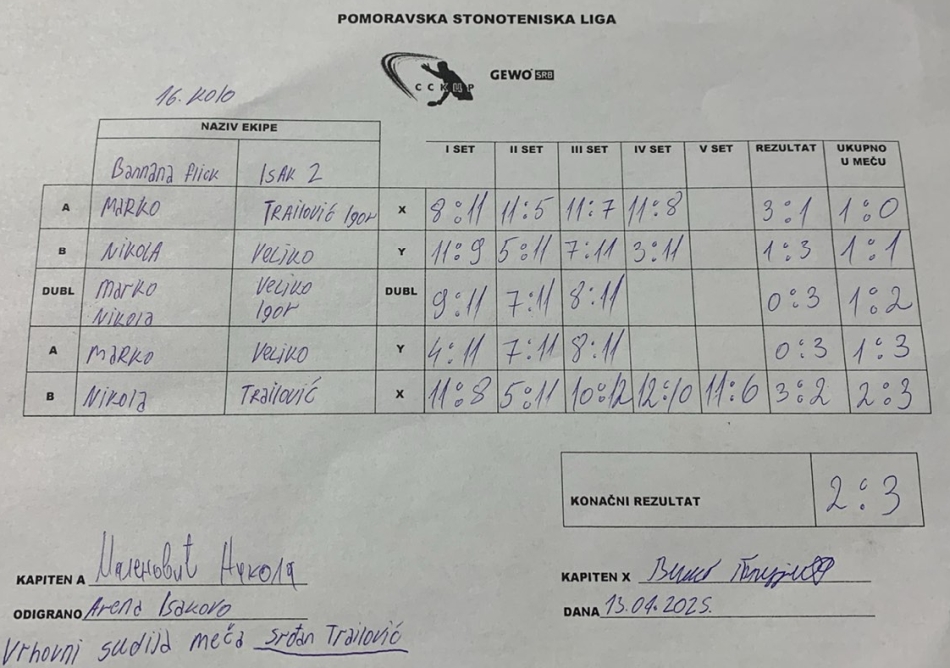 POMORAVSKA STONOTENISKA LIGA
ССКЦР GEWO SRB
16. KOLO
NAZIV EKIPE
I SET II SET III SET IV SET V SET REZULTAT UKUPNO U MEČU
Bannana flick ISAK 2
A MARKO TRAILOVIĆ Igor X 8:11 11:5 11:7 11:8 3:1 1:0
B NIKOLA VELJKO Y 11:9 5:11 7:11 3:11 1:3 1:1
DUBL Marko Nikola VELJKO Igor DUBL 9:11 7:11 8:11 0:3 1:2
A MARKO VELJKO Y 4:11 7:11 8:11 0:3 1:3
B Nikola TRAILOVIĆ X 11:8 5:11 10:12 12:10 11:6 3:2 2:3
KONAČNI REZULTAT 2:3
KAPITEN A Миленовић Никола KAPITEN X
ODIGRANO Arena Isakovo DANA 13.04.2025.
Vrhovni sudija meča Srđan Trailović